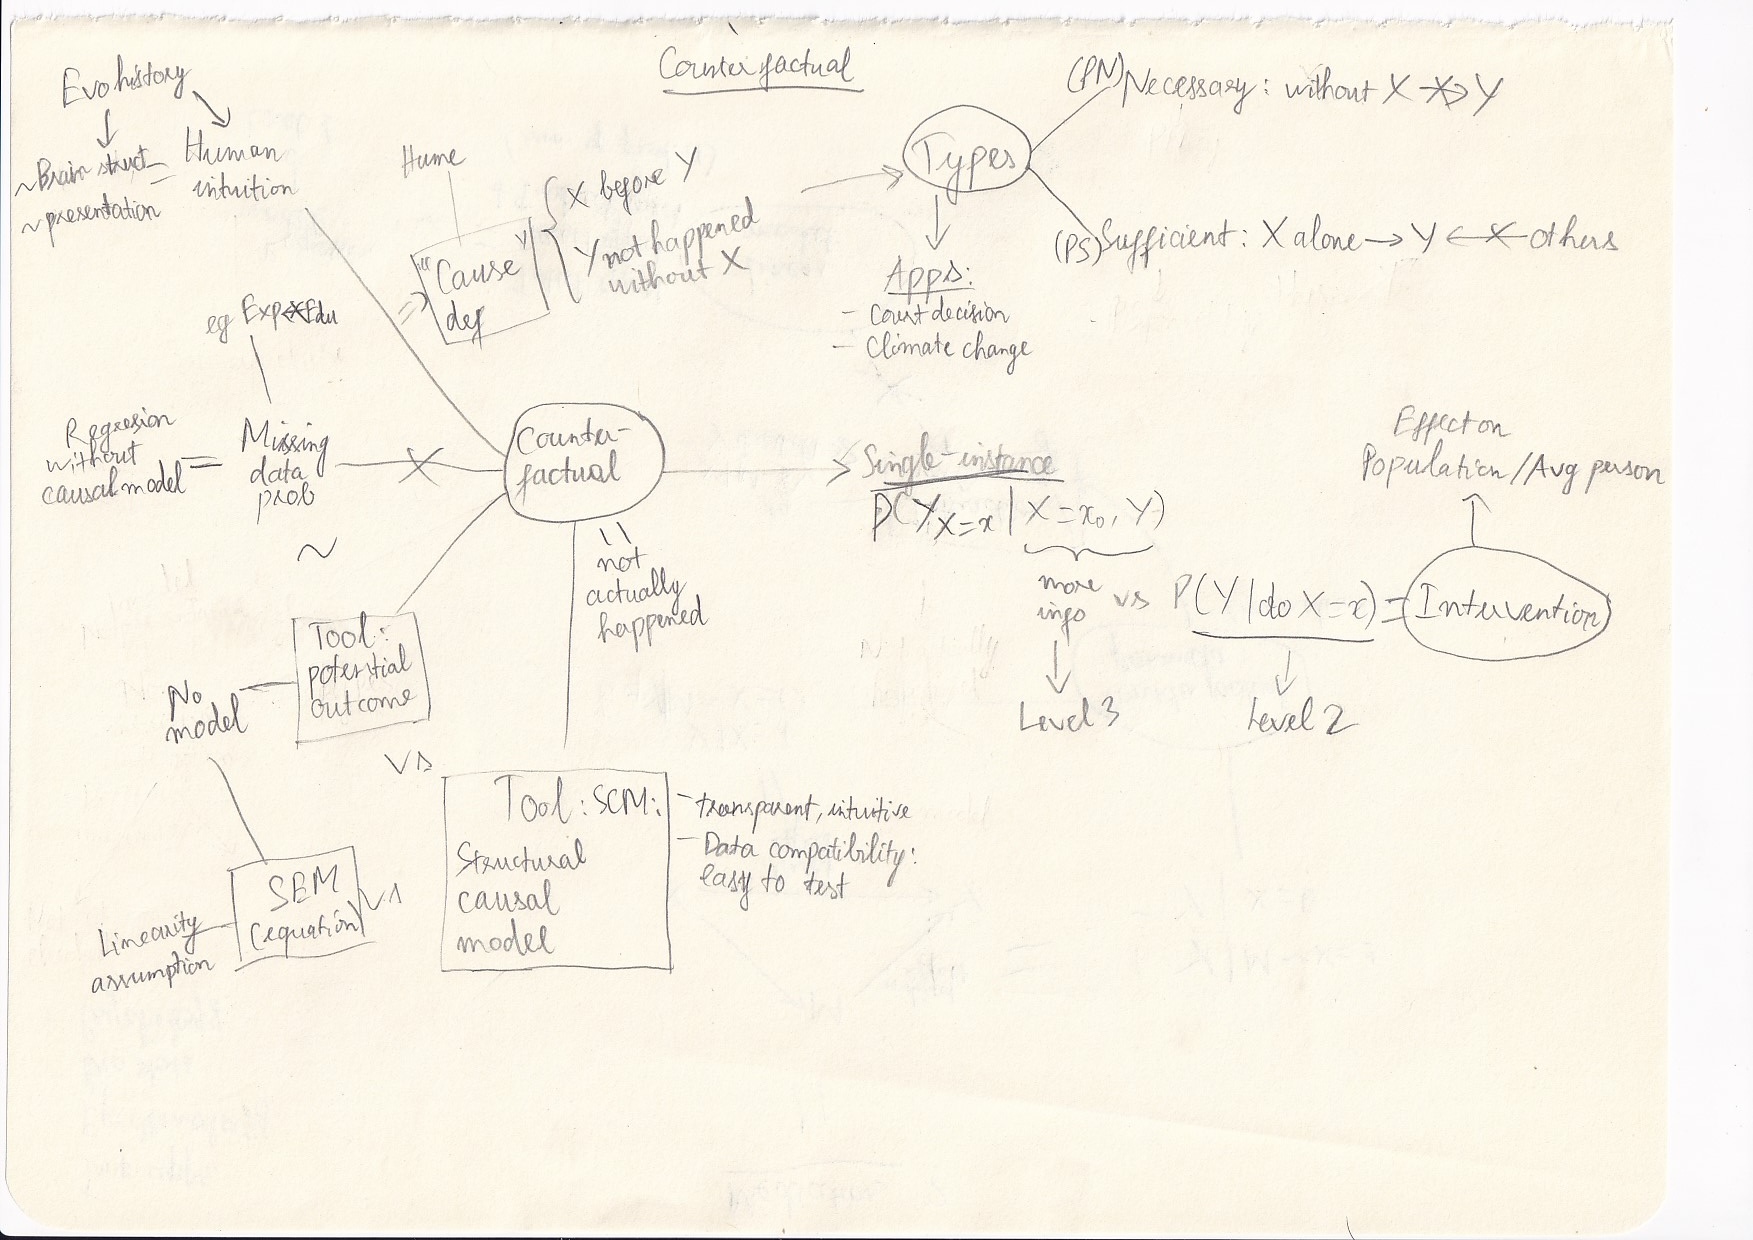 Counterfactual
Evo history
Human
intuition
~Brain struct
~presentation
Hume
"Cause"
def
X before Y
Y not happened
without X
Types
(PN) Necessary: without X -X-> Y
(PS) Sufficient: X alone → Y <-X- others
Apps:
- Court decision
- Climate change
eg Exp <-X- Edu
Regresion
without
causal model
=
Missing
data
prob
X
Counter-
factual
Single-instance
P(Y_{X=x} | X=x₀, Y)
more
info
Level 3
vs P(Y|do X=x) = Intervention
Level 2
Effect on
Population/Avg person
=
not
actually
happened
~
Tool:
potential
outcome
No
model
vs
Tool: SCM:
Structural
causal
model
- transparent, intuitive
- Data compatibility:
easy to test
SEM
(equation)
vs
Linearity
assumption